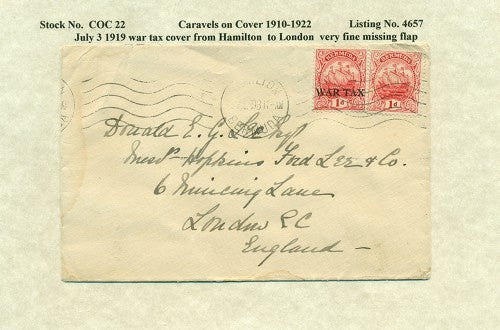 Stock No. COC 22 Caravels on Cover 1910-1922 Listing No. 4657
July 3 1919 war tax cover from Hamilton to London very fine missing flap
BERMUDA BERMUDA
WAR TAX
1d 1d
HAMILTON
BERMUDA
Donald E. G. Lee Esqr
Messrs Hopkins Ford Lee & Co.
6 Mincing Lane
London E C
England